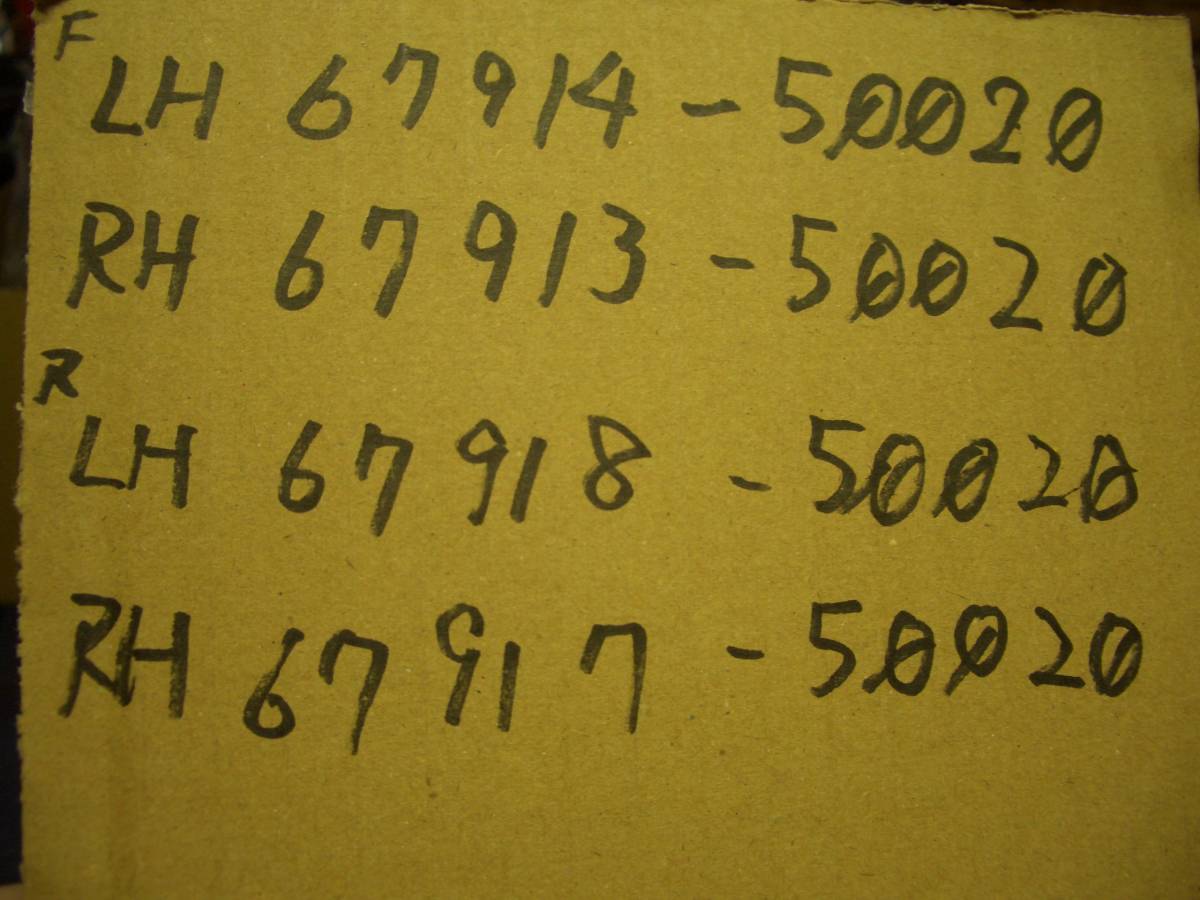 F
LH 67914-50020
RH 67913-50020
R
LH 67918-50020
RH 67917-50020